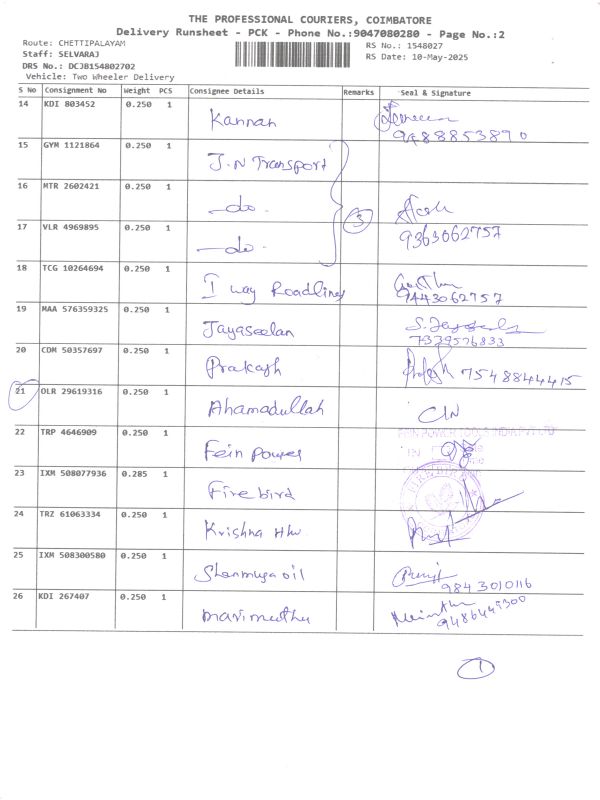 THE PROFESSIONAL COURIERS, COIMBATORE
Delivery Runsheet - PCK - Phone No.:9047080280 - Page No.:2
Route: CHETTIPALAYAM
RS No.: 1548027
Staff: SELVARAJ
RS Date: 10-May-2025
DRS No.: DCJB154802702
Vehicle: Two Wheeler Delivery
S No Consignment No Weight PCS Consignee Details Remarks Seal & Signature
14 KDI 803452 0.250 1 Kannan 9488853890
15 GYM 1121864 0.250 1 J.N Transport
16 MTR 2602421 0.250 1 -do- 3
17 VLR 4969895 0.250 1 -do- 9363062757
18 TCG 10264694 0.250 1 I way Roadlines 9443062757
19 MAA 576359325 0.250 1 Jayaseelan 7339576833
20 CDM 50357697 0.250 1 Prakash 7548844415
21 OLR 29619316 0.250 1 Ahamadullah C/N
22 TRP 4646909 0.250 1 Fein Power
23 IXM 508077936 0.285 1 Fire bird
24 TRZ 61063334 0.250 1 Krishna Hw
25 IXM 508300580 0.250 1 Shanmuga oil 9843010116
26 KDI 267407 0.250 1 marimuthu 9486449300
1